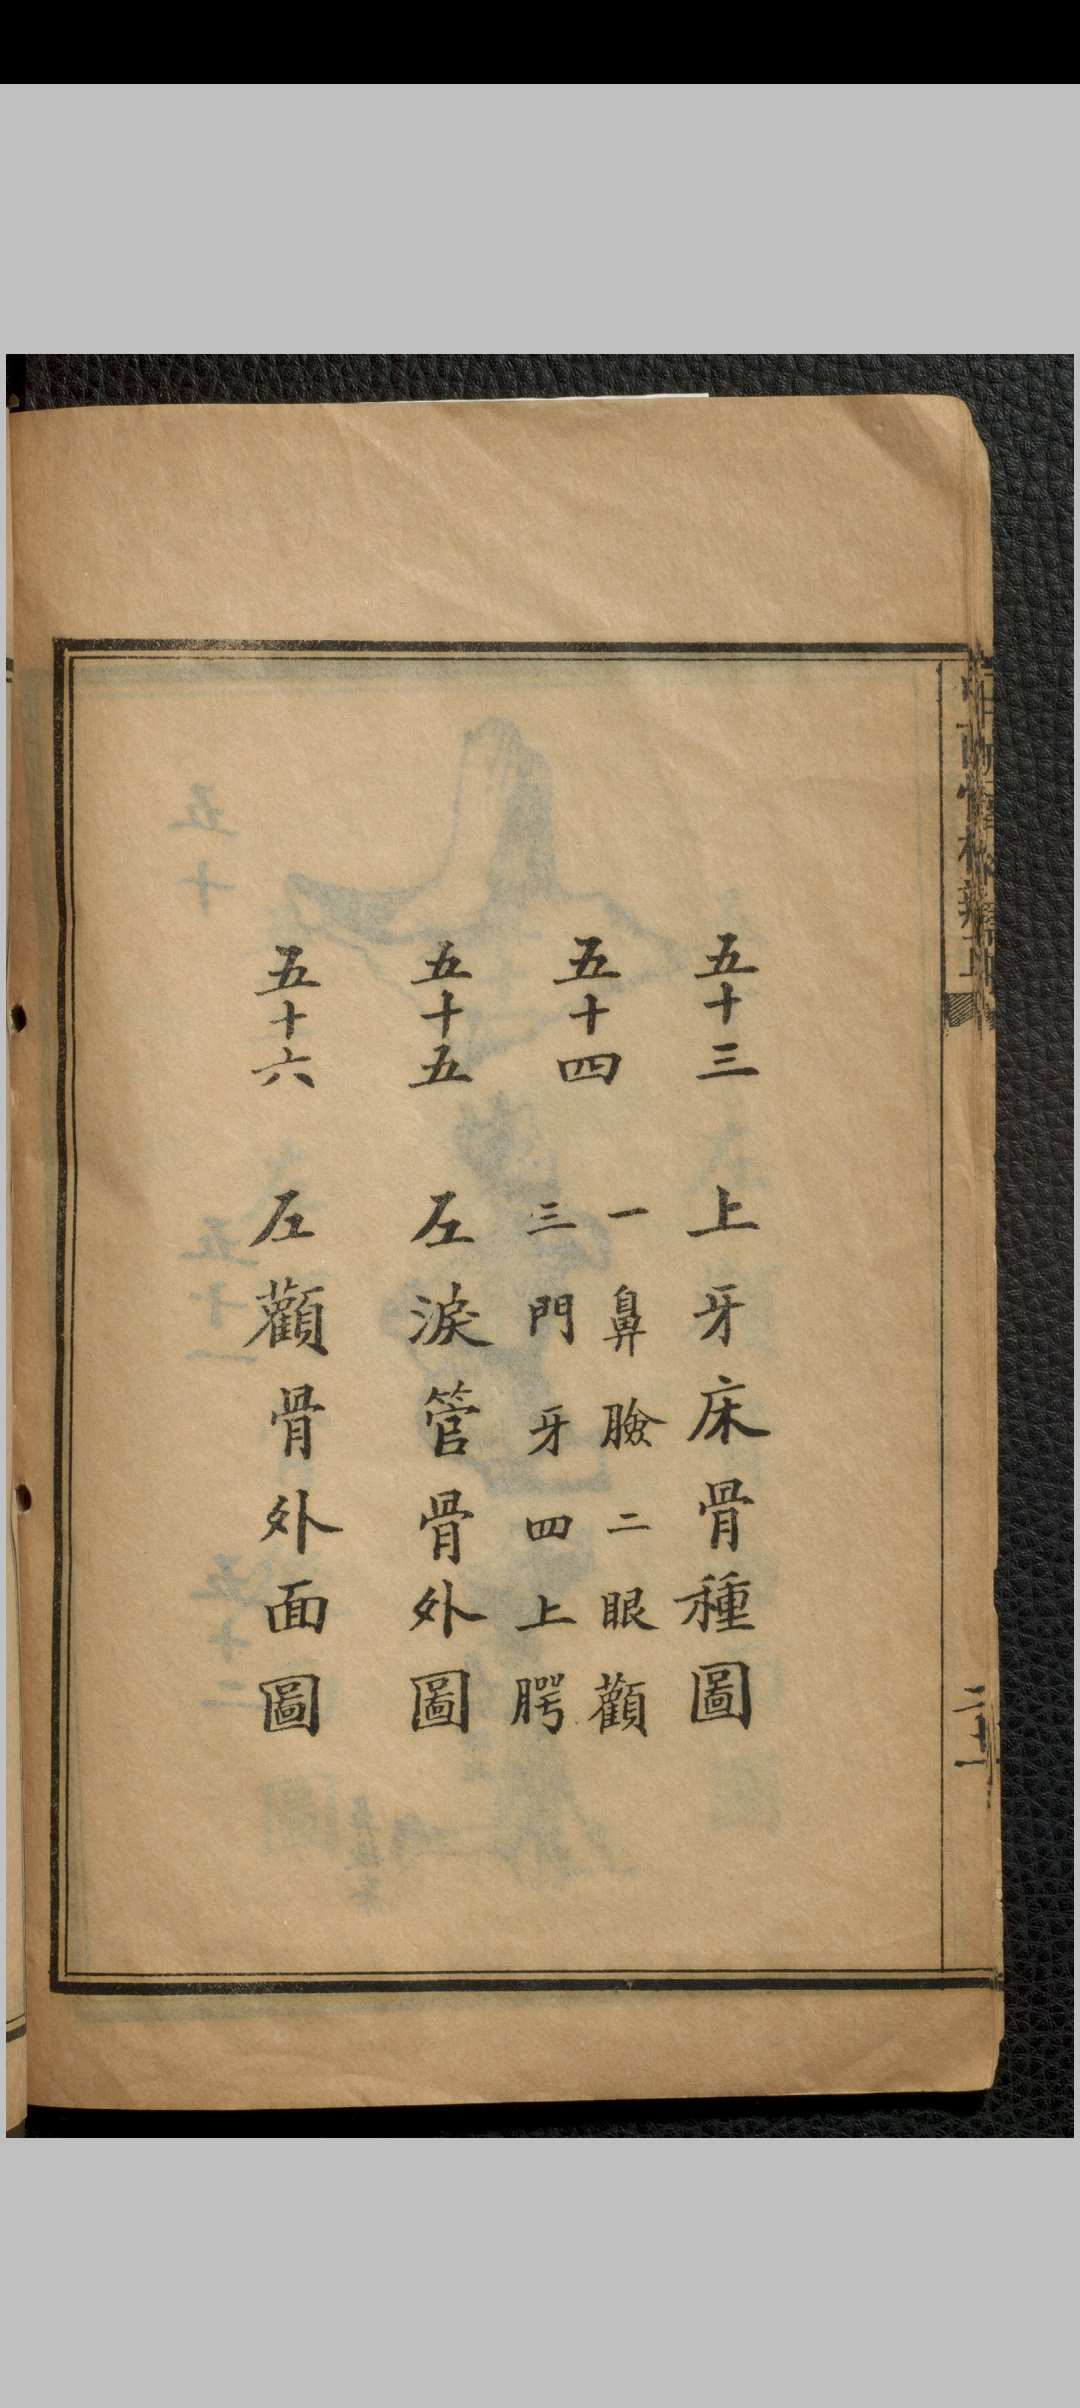 五十三 上牙床骨種圖
五十四 一鼻臉二眼顴
三門牙四上腭
五十五 左淚管骨外圖
五十六 左顴骨外面圖